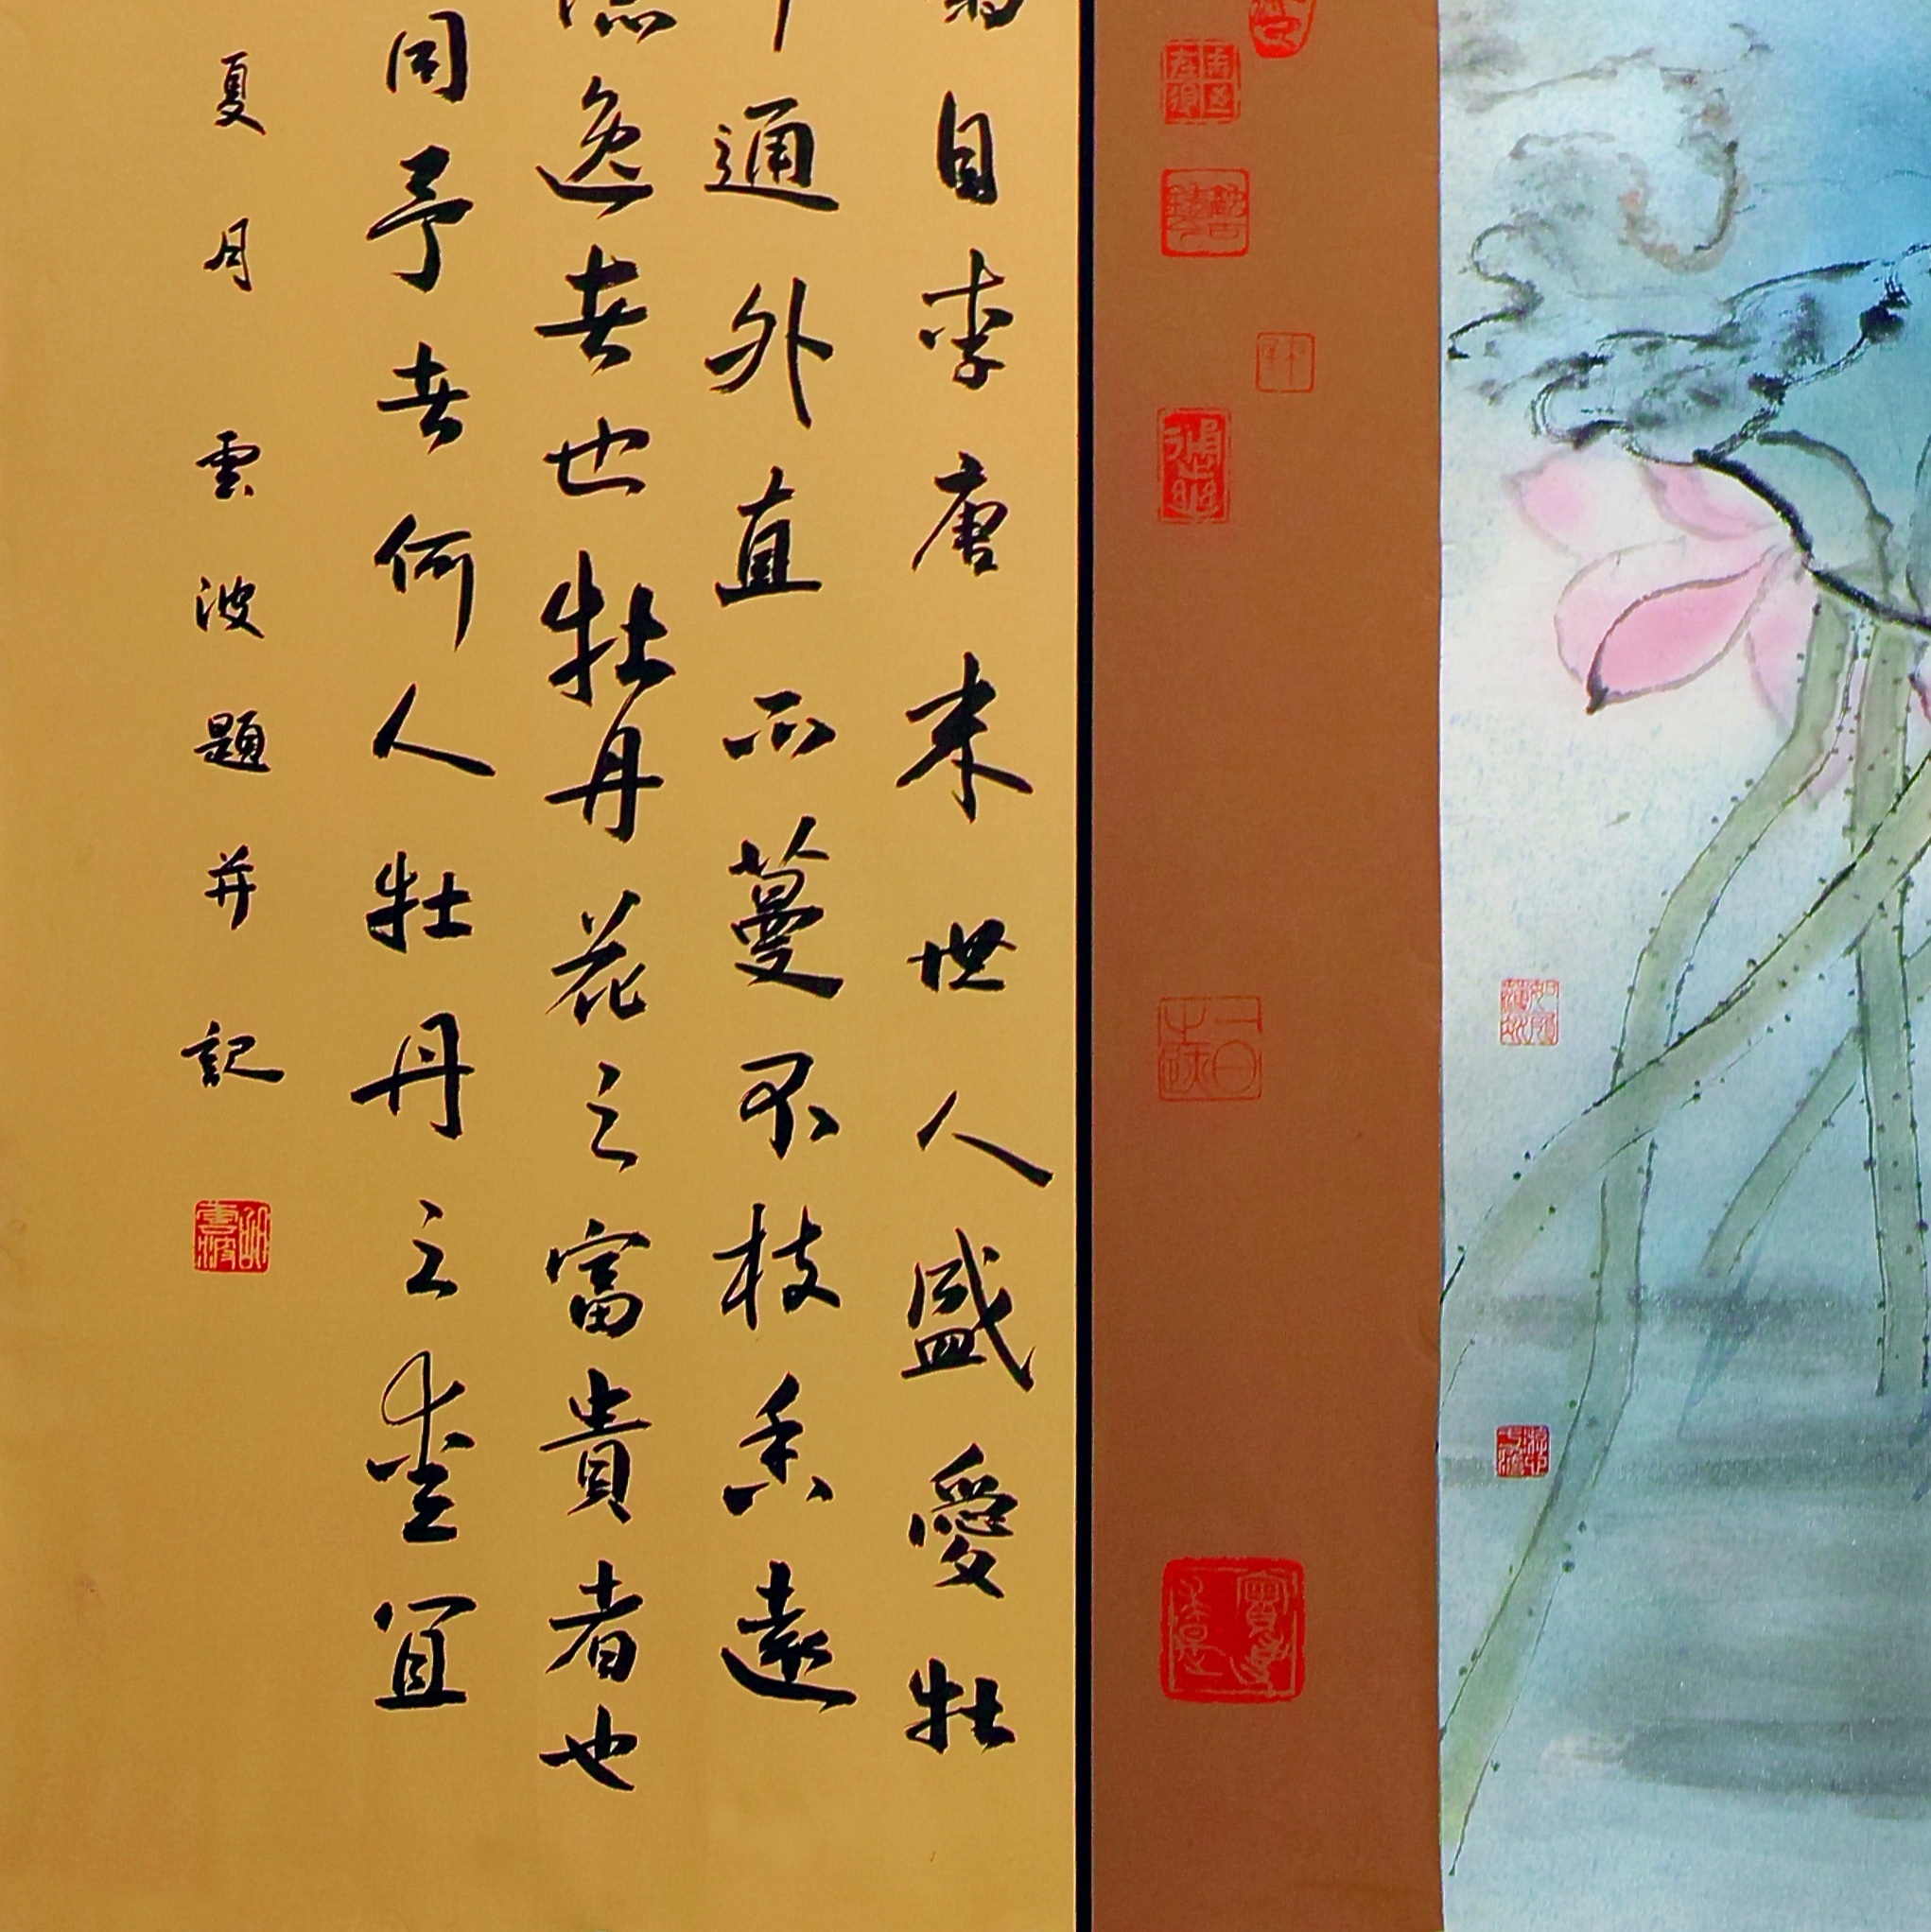 自李唐来世人盛愛牡
通外直不蔓不枝香遠
逸者也牡丹花之富貴者也
同予者何人牡丹之愛宜
夏月雲波題并記